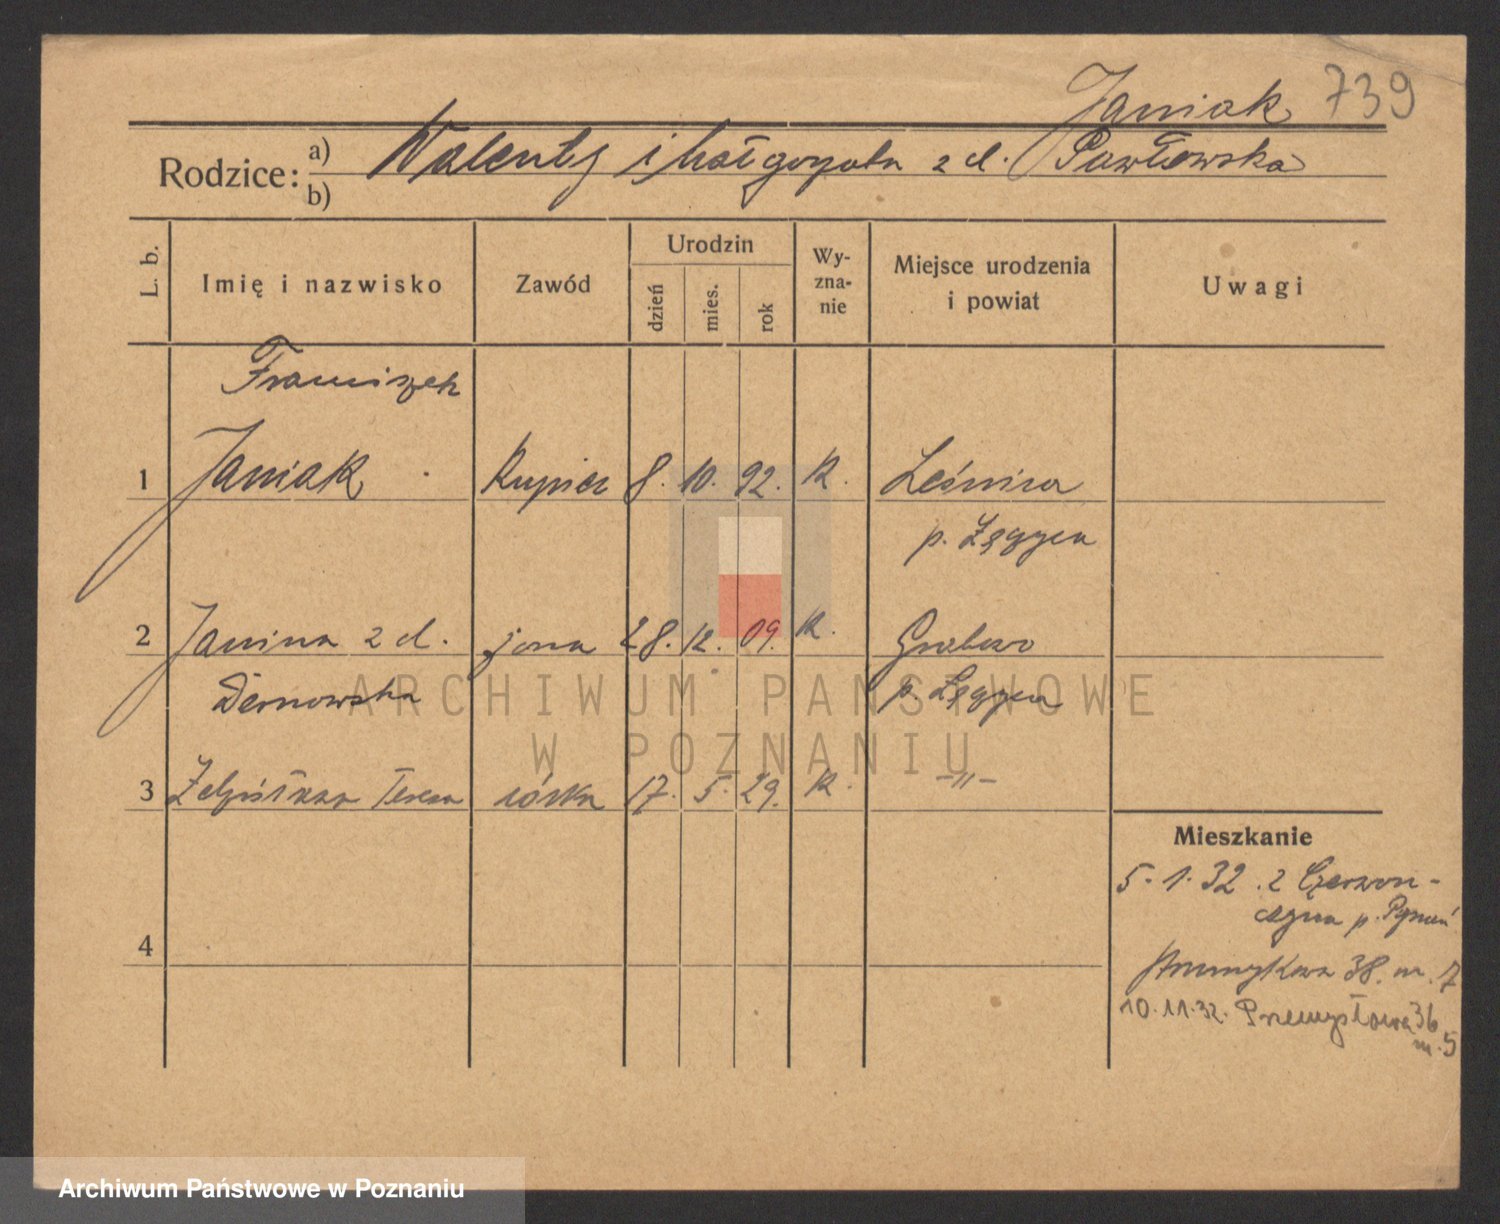 Janiak 739
Rodzice: a) Walenty i Małgorzata z d. Pawłowska
b)
L. b. Imię i nazwisko Zawód Urodzin dzień mies. rok Wyzna-nie Miejsce urodzenia i powiat Uwagi
Franciszek
1 Janiak Kupiec 8. 10. 92. K. Leśnica
p. Łęczyca
2 Janina z d. żona 28. 12. 09. K. Grabowo
p. Łęczyca
3 Teresa córka 17. 5. 29. K. -"-
Mieszkanie
5. 1. 32. z Czerwon-
p. Poznań
38. m. 7
4
10. 11. 32. Przemysłowa 36
m. 5
ARCHIWUM PAŃSTWOWE
W POZNANIU
Archiwum Państwowe w Poznaniu